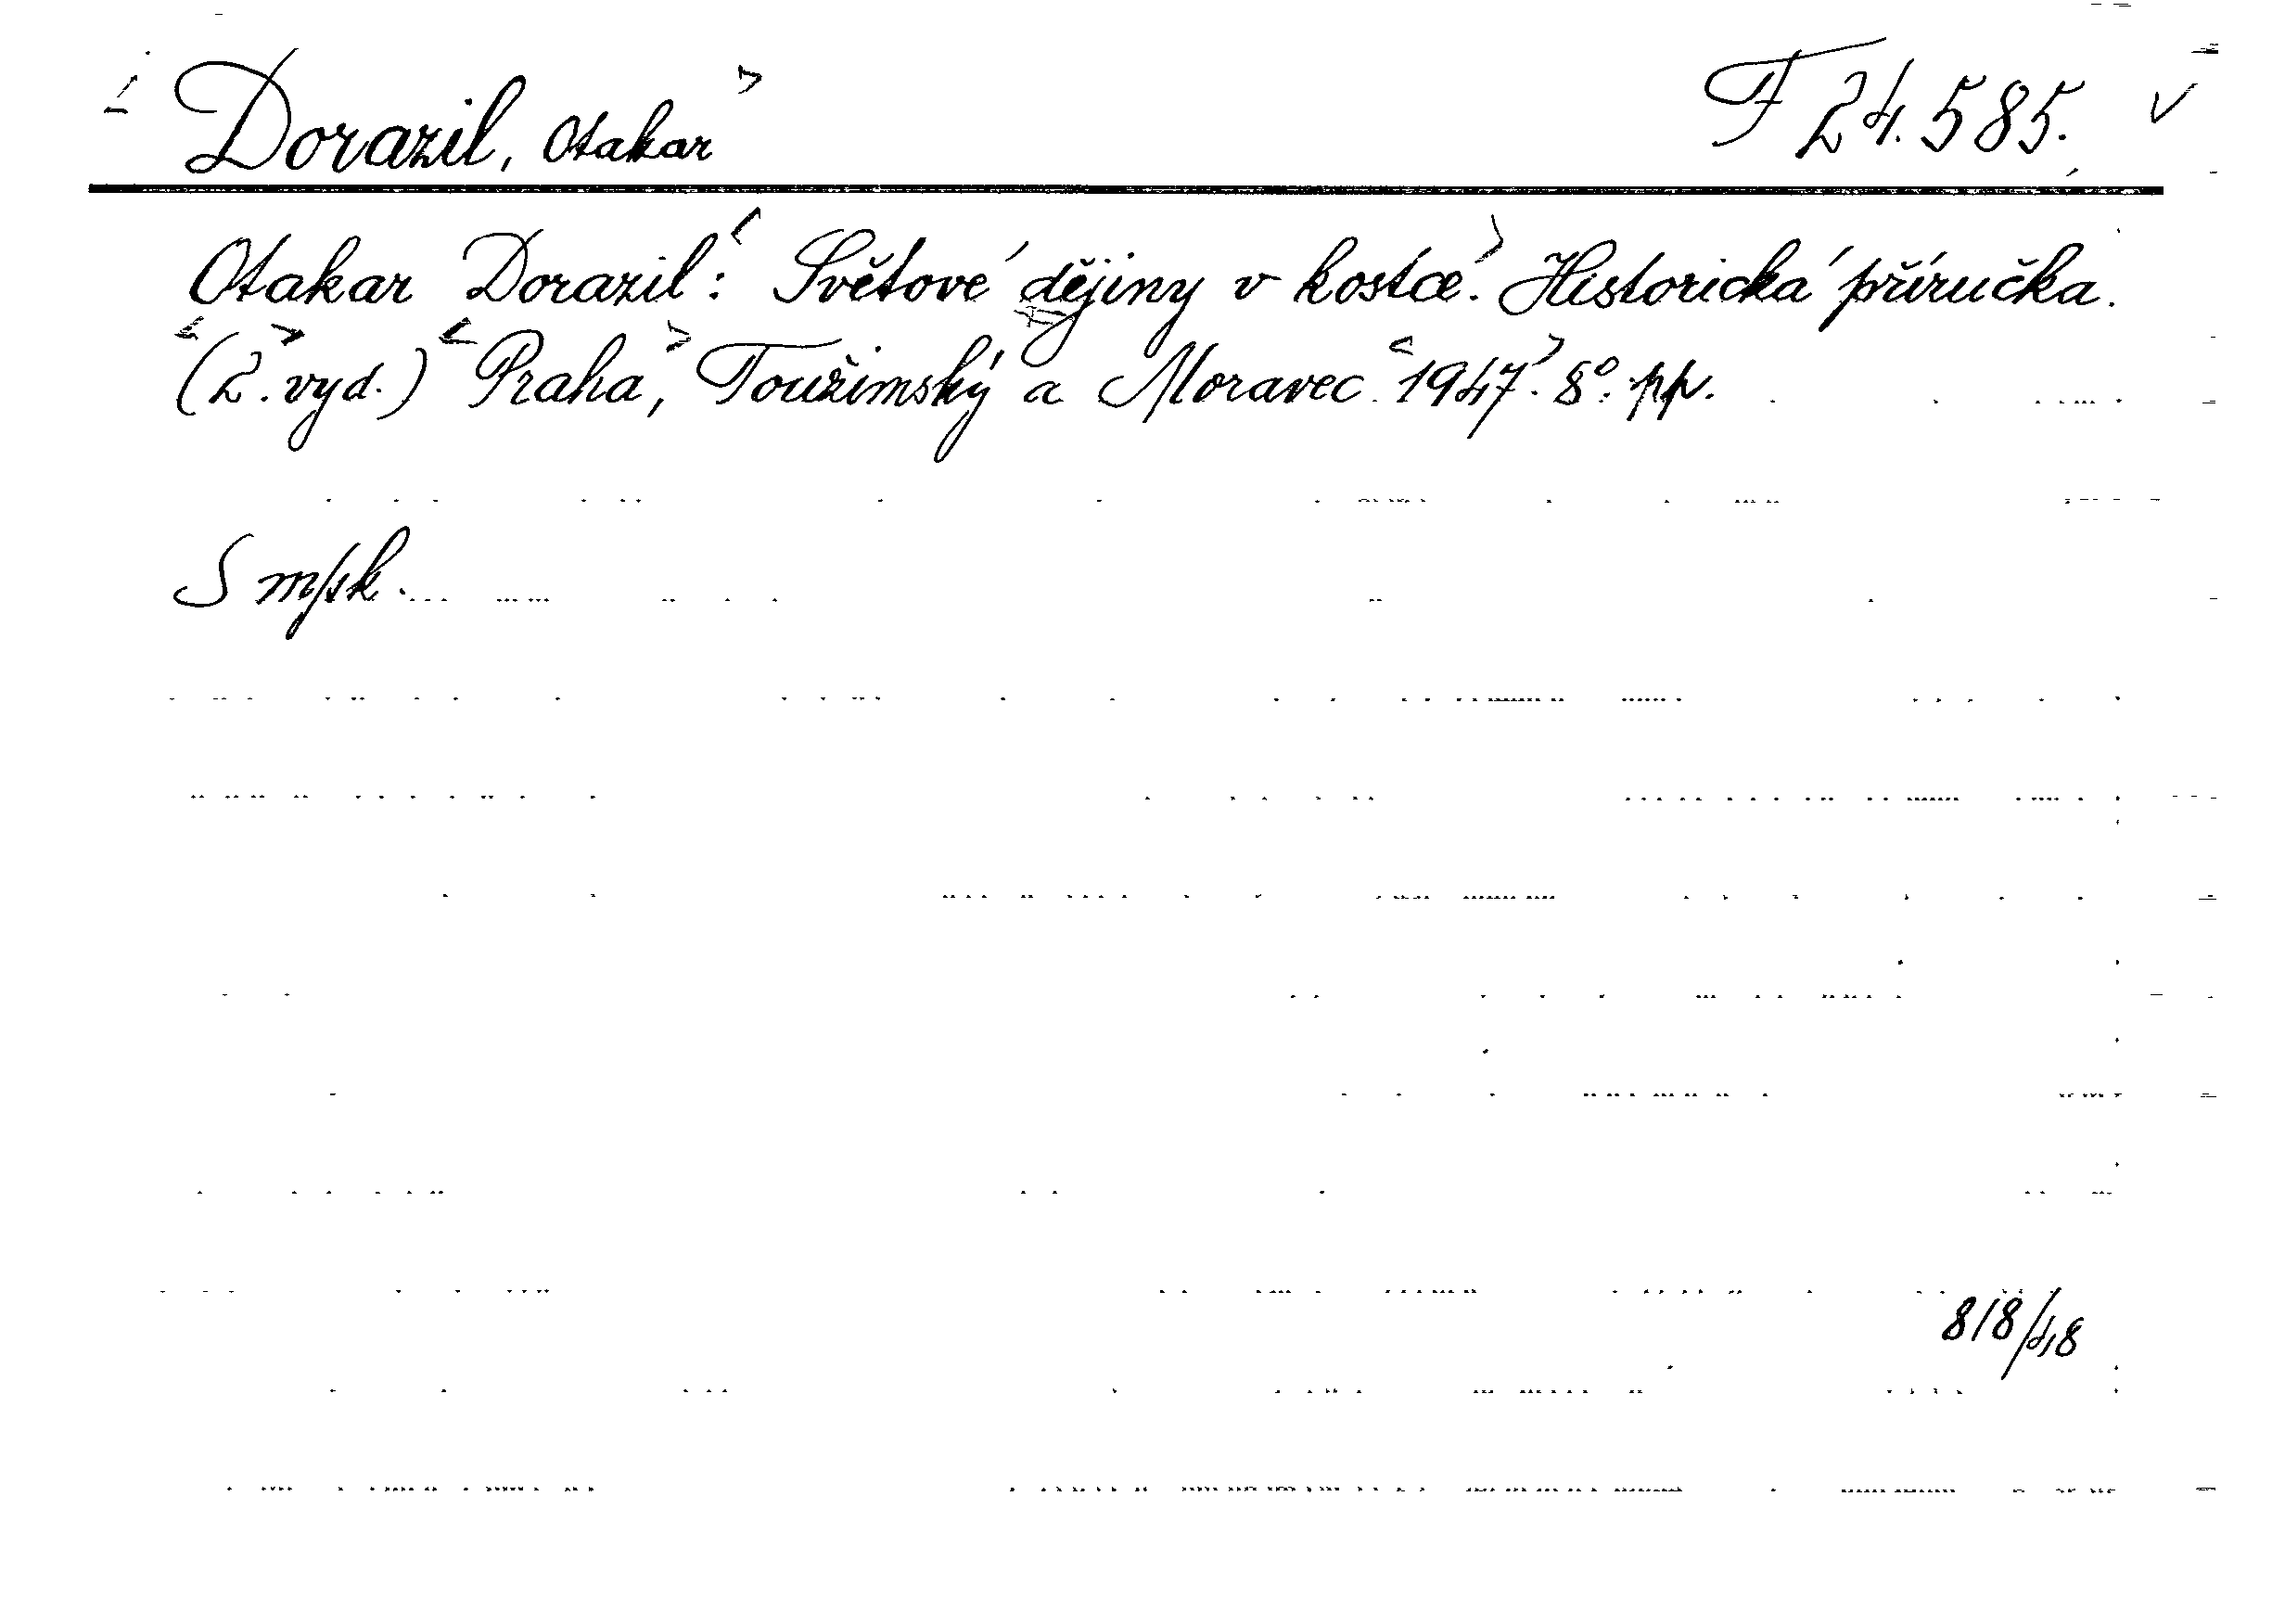 Dorazil, Otakar F 24.585.
Otakar Dorazil: Světové dějiny v kostce. Historická příručka.
(2. vyd.) Praha, Toužimský a Moravec 1947. 8°. pp.
S m/sk.
818/48